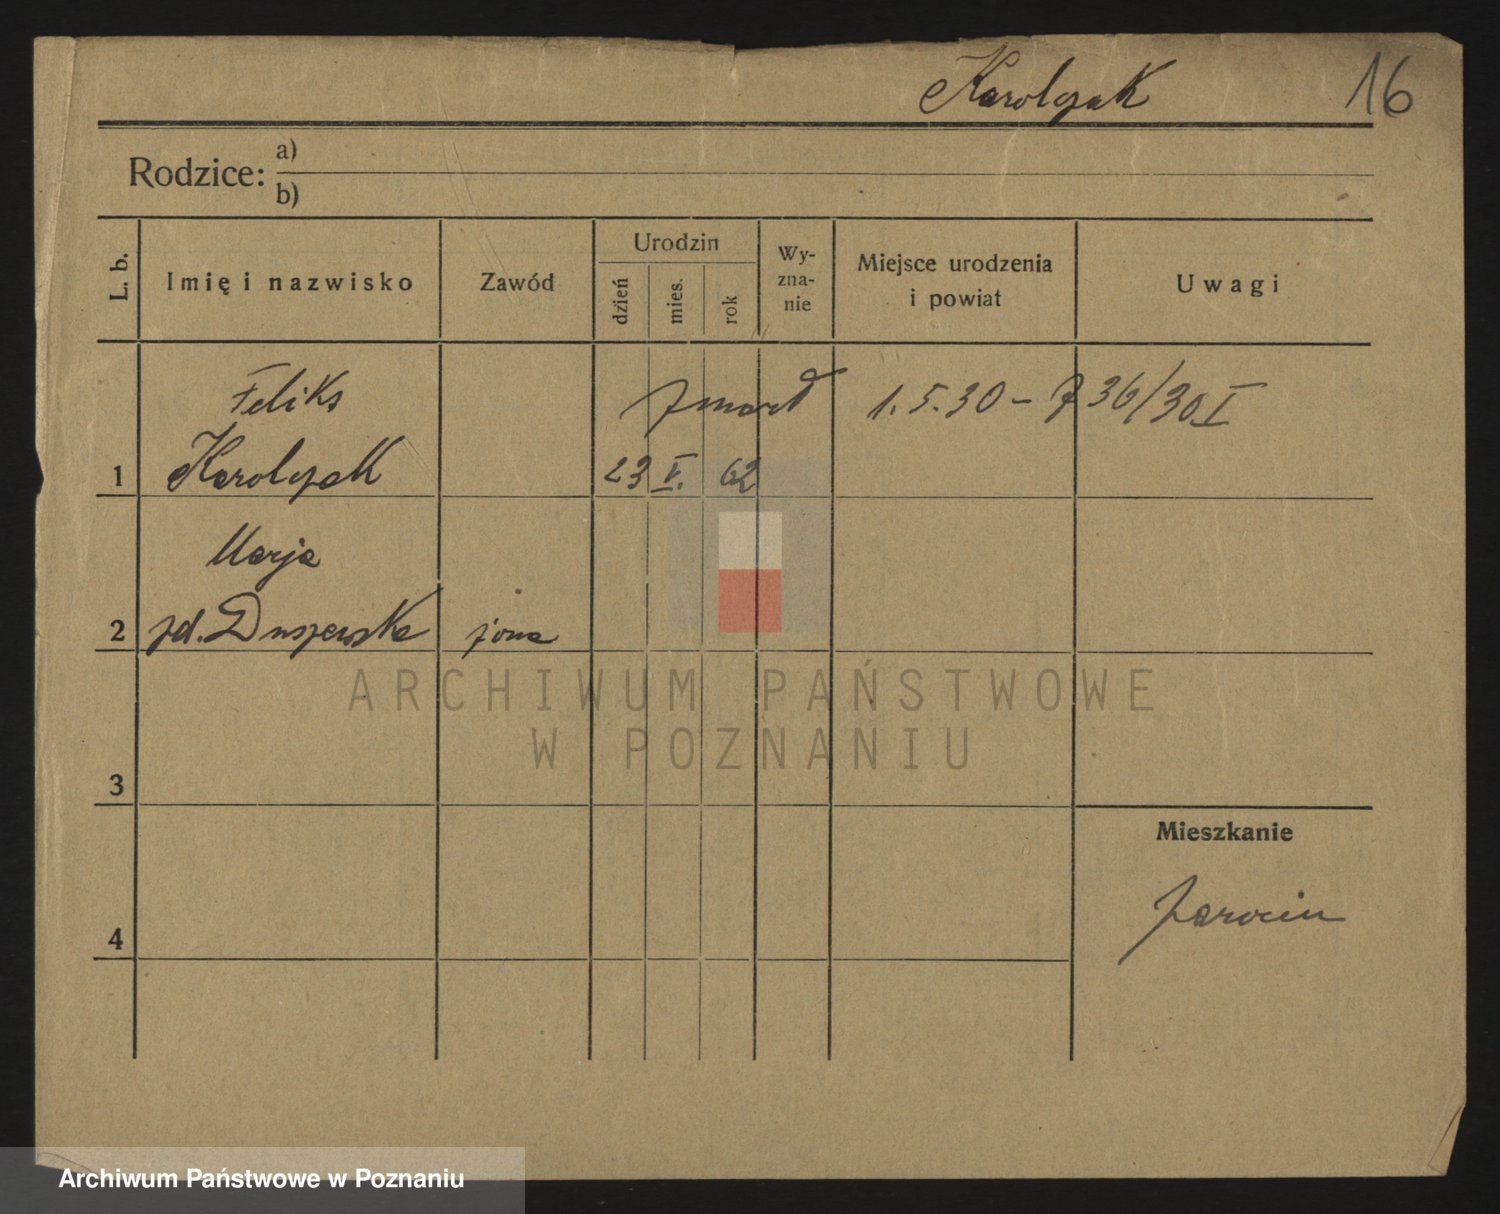 Karolczak 16
Rodzice: a)
b)
L. b.
Imię i nazwisko
Zawód
Urodzin
dzień
mies.
rok
Wy-
zna-
nie
Miejsce urodzenia
i powiat
Uwagi
Feliks zmarł 1.5.30 – 36/30 I
1 Karolczak 23 V. 62
Marja
2 żona
ARCHIWUM PAŃSTWOWE
W POZNANIU
3
Mieszkanie
Jarocin
4
Archiwum Państwowe w Poznaniu